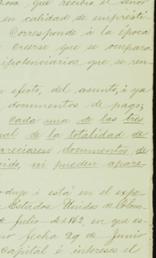 que recibió el Seno
en calidad de emprésti
Corresponde á la época
creerse que se ampara
ipotenciarios que se reu
efecto, del asunto, á ya
documentos de pago,
cada una de las tres
de la totalidad de
documentos, de
ni pueden apare
i está en el expe
Estados Unidos de Colom
Julio de 1862, en que es
fecha 29 de Junio
capital é intereses el